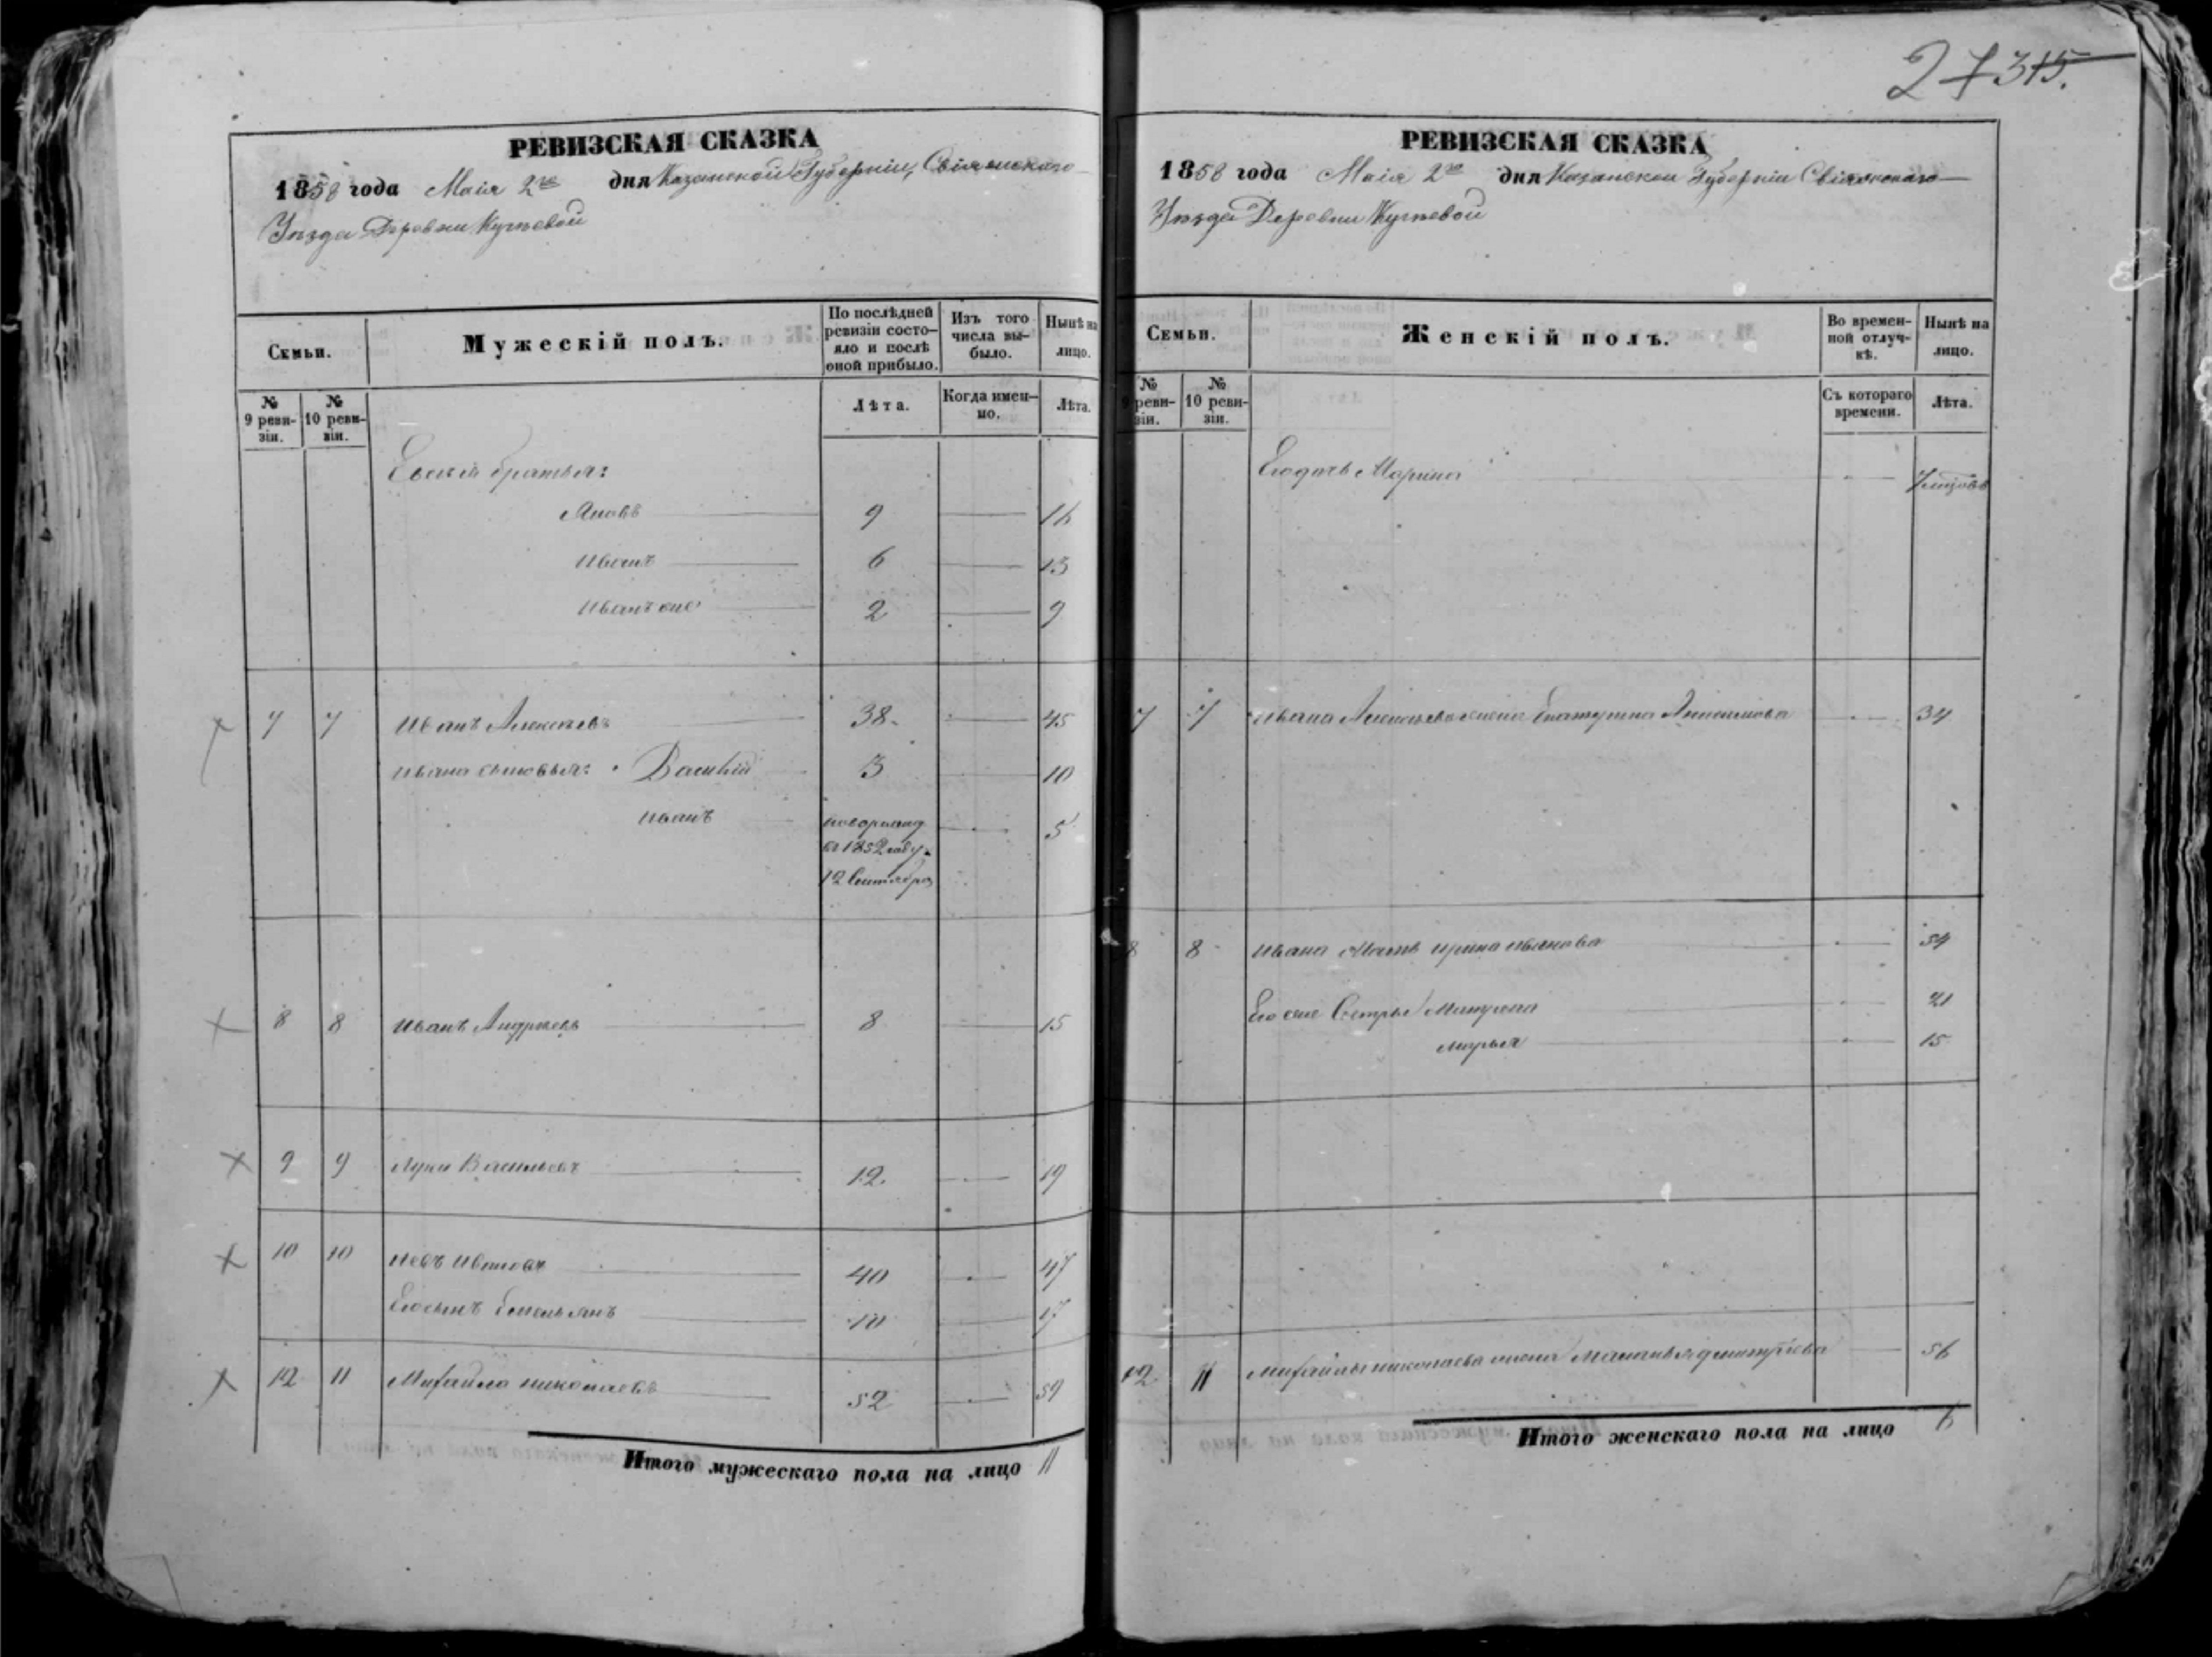 27 315.
РЕВИЗСКАЯ СКАЗКА
1858 года Маія 2го дня Казанской Губерніи, Свіяжскаго
Уѣзда Деревни
Семьи.
Мужескій полъ.
По послѣдней ревизіи состо-
яло и послѣ оной прибыло.
Изъ того числа вы-
было.
Нынѣ на лицо.
№ 9 реви-
зіи.
№ 10 реви-
зіи.
Лѣта.
Когда имен-
но.
Лѣта.
братья:
Яковъ 9 16
Иванъ 6 13
Иванъ же 2 9
7 7 Иванъ Алексѣевъ 38 45
Ивана сыновья: Василій 3 10
Иванъ новорожд 5
въ 1852 году
12 Сентября
8 8 Иванъ Андреевъ 8 15
9 9 Лука Васильевъ 12. 19
10 10 Ивановъ 40 47
Его сынъ Емельянъ 10 17
12 11 Михайла Николаевъ 52 59
Итого мужескаго пола на лицо 11
РЕВИЗСКАЯ СКАЗКА
1858 года Маія 2го дня Казанской Губерніи Свіяжскаго
Уѣзда Деревни
Семьи.
Женскій полъ.
Во времен-
ной отлуч-
кѣ.
Нынѣ на лицо.
№ 9 реви-
зіи.
№ 10 реви-
зіи.
Съ котораго времени.
Лѣта.
Его дочь Марина
7 7 Ивана Алексѣева жена Екатерина 34
8 8 Ивана Мать Ирина Иванова 54
Его же Сестры Матрена 21
Марья 15
12 11 Михайлы Николаева жена Маланья Дмитріева 56
Итого женскаго пола на лицо 6